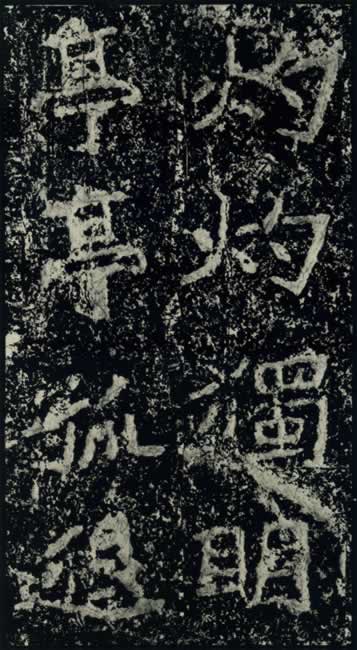 灼灼獨明
亭亭孤逸